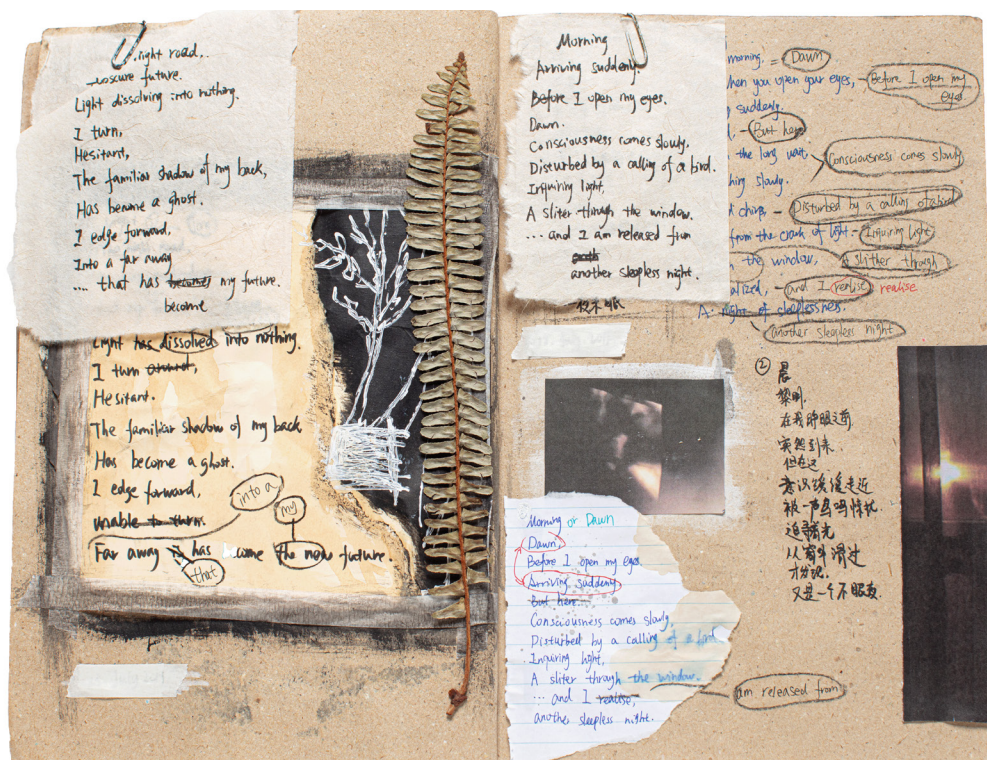 right road,
obscure future.
Light dissolving into nothing.
I turn,
Hesitant,
The familiar shadow of my back,
Has become a ghost.
I edge forward,
Into a far away
.... that has becomes my future.
become
Light has dissolved into nothing.
I turn around,
Hesitant.
The familiar shadow of my back
Has become a ghost.
I edge forward,
into a
my
unable to turn.
Far away is has become the new future.
that
Morning
Arriving suddenly.
Before I open my eyes.
Dawn.
Consciousness comes slowly,
Disturbed by a calling of a bird.
Inquiring light,
A sliter through the window.
... and I am released from
another sleepless night.
morning. = Dawn
when you open your eyes, - Before I open my eyes
suddenly.
- But here
the long wait, Consciousness comes slowly
slowly.
chirp, - Disturbed by a calling of a bird
from the crack of light - Inquiring light
the window, A slither through
alized, - and I realise realise
A night of sleeplessness.
another sleepless night
② 晨
黎明.
在我睁眼之前
突然到来.
但在这
意识缓缓走近
被一声鸟鸣惊扰
追寻光
从窗外滑过
才发现.
又是一个不眠夜.
Morning or Dawn
Dawn,
Before I open my eyes
Arriving suddenly
But here.
Consciousness comes slowly,
Disturbed by a calling of a bird
Inquiring light,
A sliter through the window.
... and I realise,
am released from
another sleepless night.